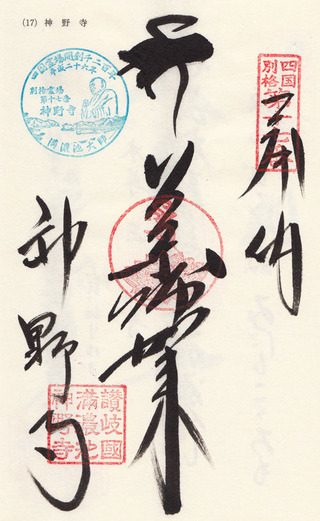 (17) 神野寺
四国
別格
第十七番
奉納
四国霊場開創千二百年
平成二十六年
別格霊場
第十七番
神野寺
満濃池大師
神野寺
讃岐國
満濃池
神野寺